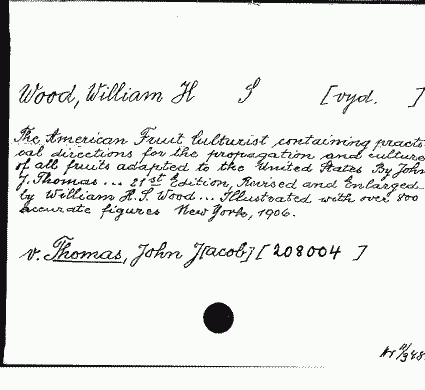 Wood, William H S [vyd. ]
The American Fruit Culturist containing practi-
cal directions for the propagation and culture
of all fruits adapted to the United States By John
J. Thomas ... 21st Edition, Revised and Enlarged
by William H. S. Wood ... Illustrated with over 800
accurate figures New York, 1906.
v. Thomas, John J[acob] [ 208004 ]